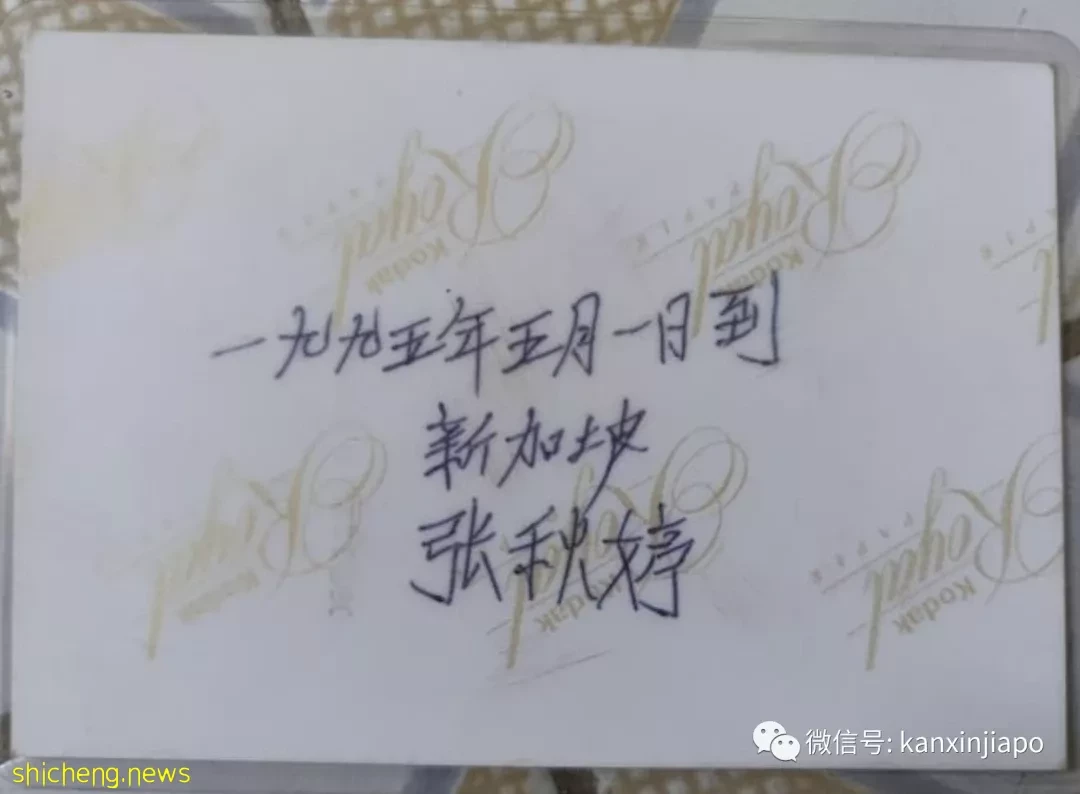 Royal
PAPER
Kodak
Royal
PAPER
Kodak
一九九五年五月一日到
新加坡
张秋婷
Royal
Kodak
Royal
PAPER
Kodak
微信号: kanxinjiapo
shicheng.news